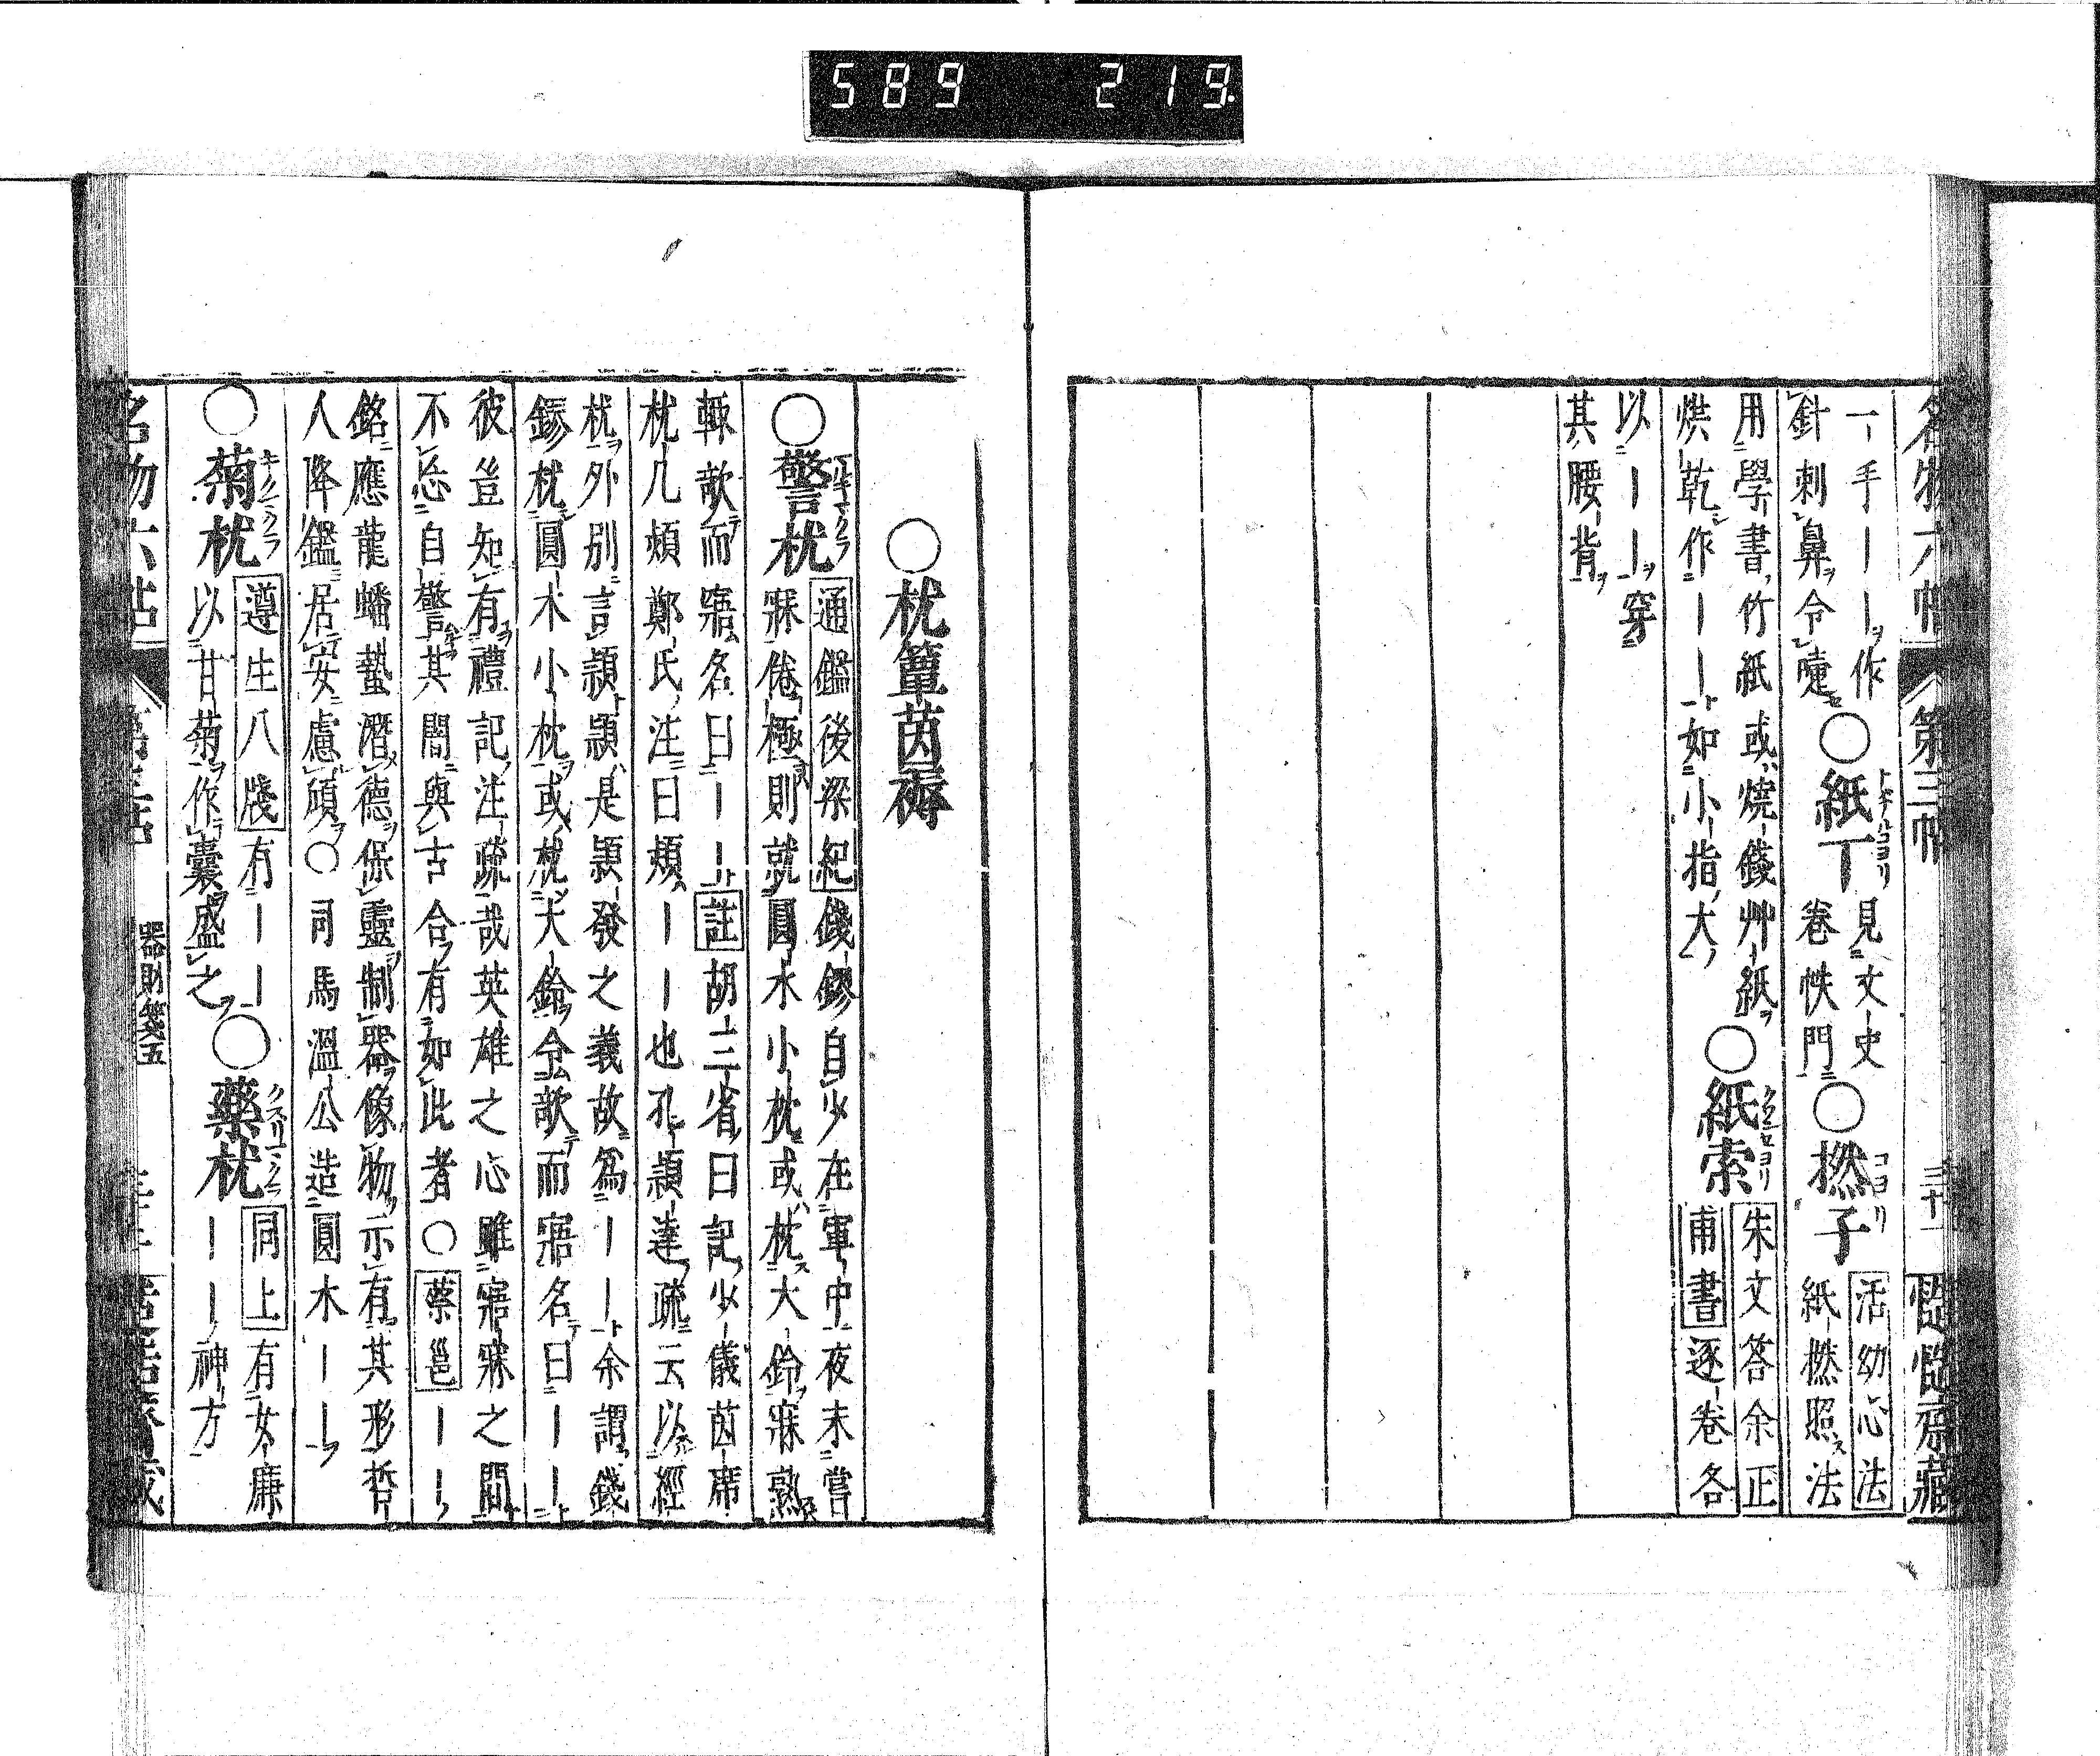 589 219
名物六帖 第三帖 三十一 𢡱𢡱齋藏
一手ーーヲ作
針刺鼻ヲ令嚏
○紙丁
見文史
卷帙門
○撚子
コヨリ
活幼心法
紙撚照法
用學書竹紙或燒錢艸紙ヲ
烘乾作ーーー如小指大
○紙索
朱文答余正
甫書逐卷各
以ーーーヲ穿
其腰背ヲ
○枕簟茵褥
○警枕
通鑑後梁紀錢鏐自少在軍中夜未嘗
寐倦極則就圓木小枕或枕大鈴寐熟
輙欹而寤名曰ーー註胡三省曰記少儀茵席
枕几熲鄭氏注曰熲ーー也孔穎達疏云以經
枕外別言熲熲是熲發之義故爲ーー余謂錢
鏐枕圓木小枕或枕大鈴令欹而寤名曰ーー
彼豈知有禮記注疏哉英雄之心雖寤寐之間
不忘自警其闇與古合有如此者○蔡邕ーー
銘應龍蟠蟄潛德保靈制器像物示有其形哲
人降鑑居安慮傾○司馬溫公造圓木ーー
○菊枕
キクノマクラ
遵生八牋有ーー
以甘菊作囊盛之
○藥枕
同上有女廉
ーー神方
器財箋五